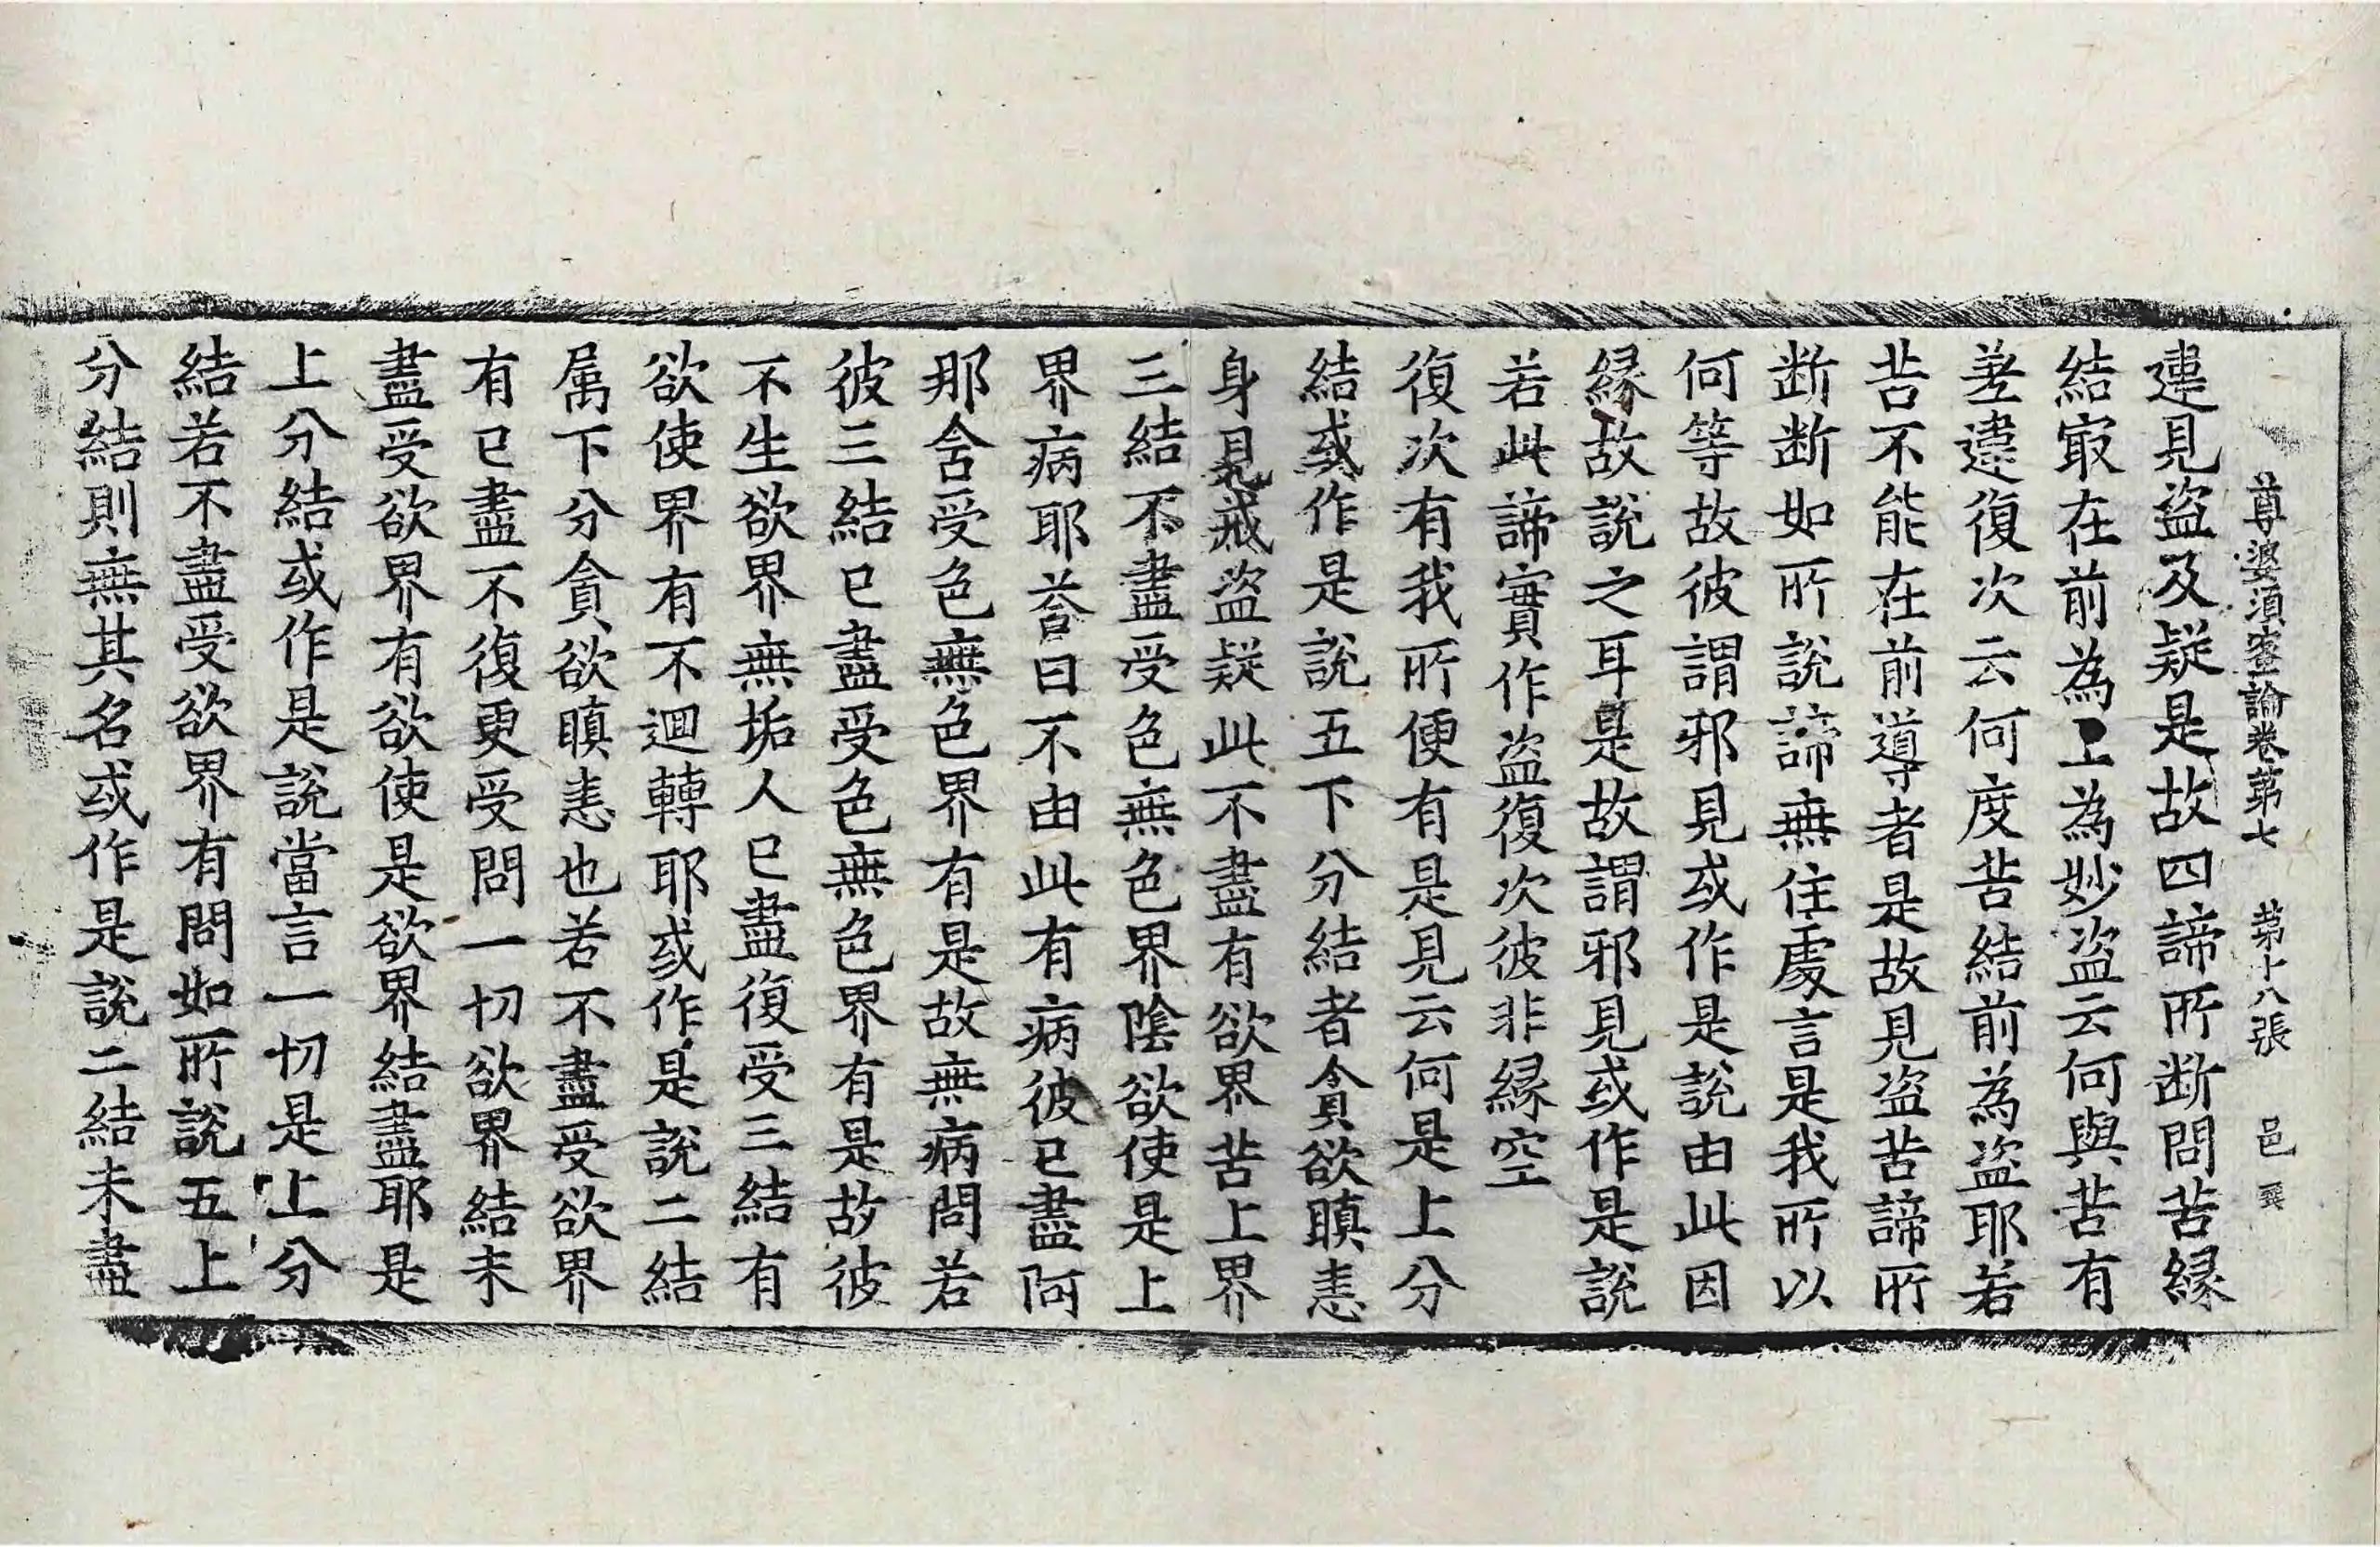 尊婆須蜜論卷苐七 苐十八張 邑
違見盜及疑是故四諦所断問苦縁
結㝡在前為上為妙盜云何與苦有
差違復次云何度苦結前為盜耶若
苦不能在前導者是故見盜苦諦所
断断如所說諦無住處言是我所以
何等故彼謂邪見或作是說由此因
縁故說之耳是故謂邪見或作是說
若此諦實作盜復次彼非縁空
復次有我所便有是見云何是上分
結或作是說五下分結者貪欲瞋恚
身見戒盜疑此不盡有欲界苦上界
三結不盡受色無色界陰欲使是上
界病耶荅曰不由此有病彼已盡阿
那舍受色無色界有是故無病問若
彼三結已盡受色無色界有是故彼
不生欲界無垢人已盡復受三結有
欲使界有不迴轉耶或作是說二結
属下分貪欲瞋恚也若不盡受欲界
有已盡不復更受問一切欲界結未
盡受欲界有欲使是欲界結盡耶是
上分結或作是說當言一切是上分
結若不盡受欲界有問如所說五上
分結則無其名或作是說二結未盡